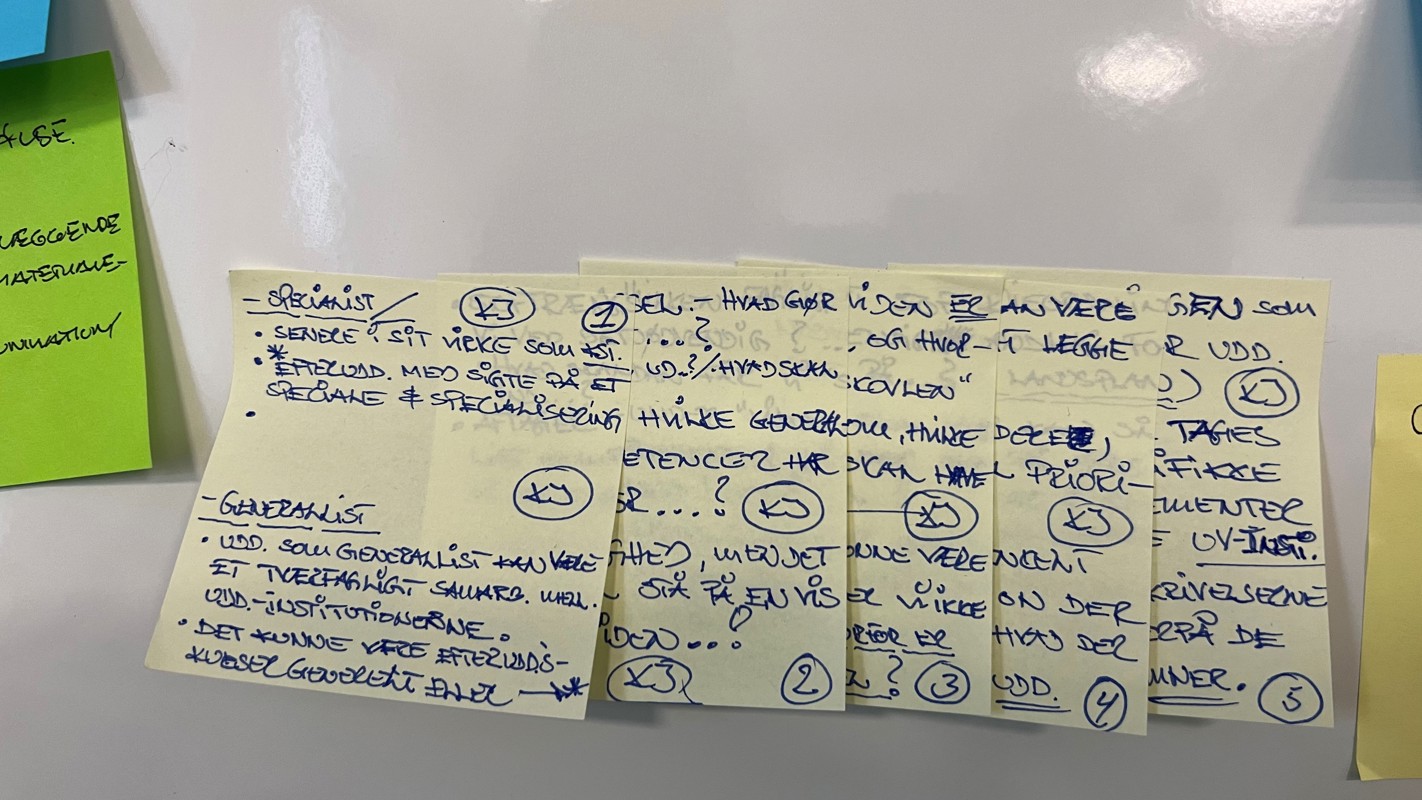 KUSE.
LÆGGENDE
MATERIALE-
UNIKATION/
- SPECIALIST/ KJ 1
• SENERE I SIT VIRKE SOM
• * EFTERUDD. MED SIGTE PÅ ET
SPECIALE & SPECIALISERING
•
KJ
- GENERALLIST
• UDD. SOM GENERALLIST KAN VÆRE
ET TVÆRFAGLIGT SAMARB. MELL.
UDD.-INSTITUTIONERNE.
• DET KUNNE VÆRE EFTERUDD.S-
KURSER GENERELT ELLER → *
SEL. - HVAD GJØR
...?
UD..?/. HVAD SKAN
HVILKE GENEREL
ETENCER HAR
ER...? KJ
GHED, MEN DET
STÅ PÅ EN VIS
IDEN...?
KJ 2
VIDEN ER
, OG HVOR-
SKOVLEN"
OM, HVILKE
SKAN HAVE
KJ
ONNE VÆRE
ER VI IKKE
ER
N? 3
AN VÆRE
T LÆGGE
DELE,
PRIORI-
KJ
NCENT
ON DER
HVAD DER
UDD. 4
GEN SOM
R UDD.
) KJ
. TAGES
IFIKKE
EMENTER
E UV-INST.
KRIVELSERNE
ERPÅ DE
MNER. 5